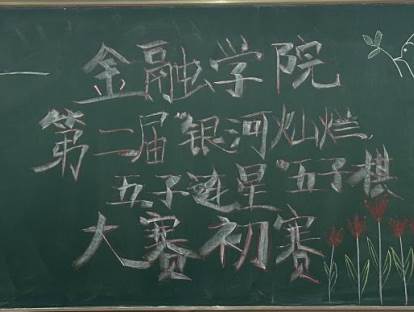 金融学院
第二届"银河灿烂,
五子连星"五子棋
大赛初赛